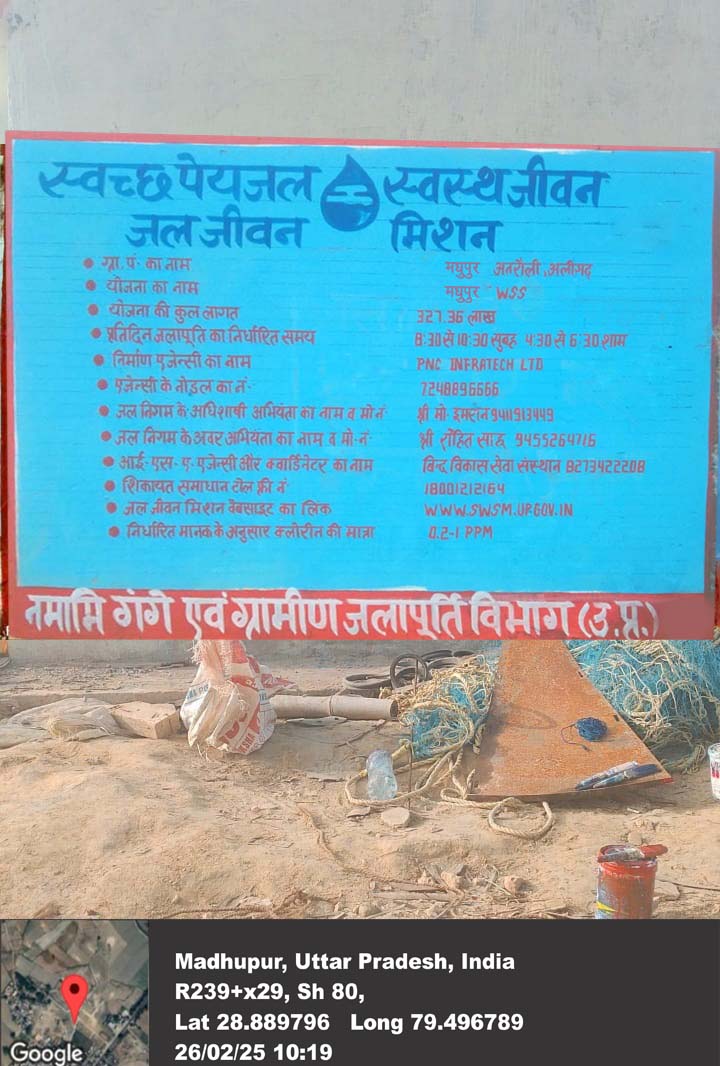 स्वच्छ पेयजल स्वस्थ जीवन
जल जीवन मिशन
ग्रा. पं. का नाम मधुपुर अतरौली, अलीगढ़
योजना का नाम मधुपुर WSS
योजना की कुल लागत 327.36 लाख
प्रतिदिन जलापूर्ति का निर्धारित समय 8:30 से 10:30 सुबह 4:30 से 6:30 शाम
निर्माण एजेन्सी का नाम PNC INFRATECH LTD
एजेन्सी के नोडल का नं. 7248896666
जल निगम के अधिशाषी अभियंता का नाम व मो.नं. श्री मो. इमरान 9411913449
जल निगम के अवर अभियंता का नाम व मो. नं. श्री रोहित साहू 9455264716
आई. एस. ए. एजेन्सी और क्वार्डिनेटर का नाम बिन्द विकास सेवा संस्थान 8273422208
शिकायत समाधान टोल फ्री नं. 18001212164
जल जीवन मिशन वेबसाइट का लिंक WWW.SWSM.UP.GOV.IN
निर्धारित मानक के अनुसार क्लोरीन की मात्रा 0.2-1 PPM
नमामि गंगे एवं ग्रामीण जलापूर्ति विभाग (उ.प्र.)
Madhupur, Uttar Pradesh, India
R239+x29, Sh 80,
Lat 28.889796 Long 79.496789
26/02/25 10:19
Google